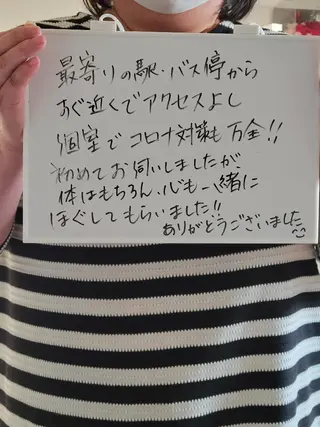 最寄りの駅・バス停から
すぐ近くでアクセスよし
個室でコロナ対策も万全!!
初めてお伺いしましたが
体はもちろん、心も一緒に
ほぐしてもらいました!!
ありがとうございました